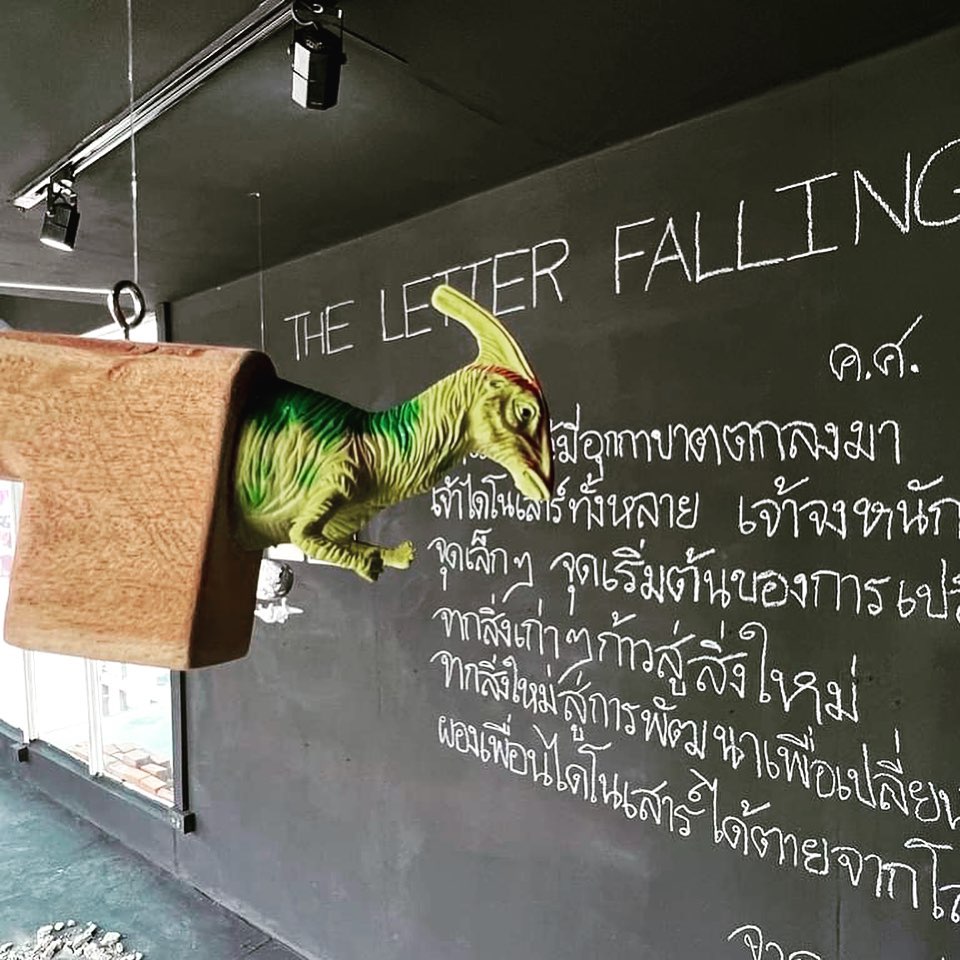 THE LETTER FALLING
ค.ศ.
มีอุกกาบาตตกลงมา
เจ้าไดโนเสาร์ทั้งหลาย เจ้าจงหนัก
จุดเล็กๆ จุดเริ่มต้นของการเป
จากสิ่งเก่าๆ ก้าวสู่สิ่งใหม่
จากสิ่งใหม่ สู่การพัฒนาเพื่อเปลี่ยน
ผองเพื่อนไดโนเสาร์ได้ตายจากโล
จาก